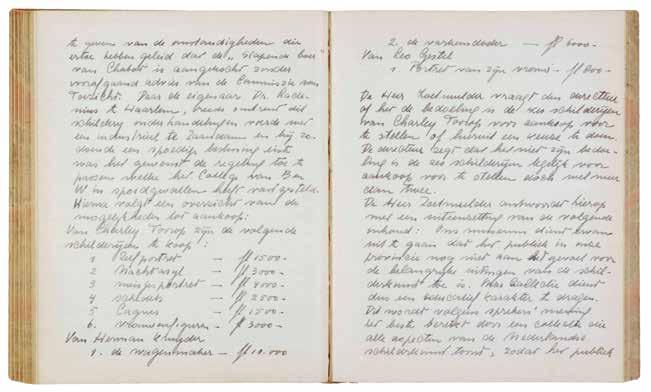 te geven van de omstandigheden die
ertoe hebben geleid dat de "Slapende boer"
van Chabot is aangekocht zonder
voorafgaand advies van de Commissie van
Toezicht. Daar de eigenaar Dr.
te Haarlem, reeds omtrent dit
schilderij onderhandelingen voerde met
een industrieel te Zaandam en hij
een spoedige beslissing
was het gewenst de regeling toe te
passen welke het College van B en
W in spoedgevallen heeft vastgesteld.
Hierna volgt een overzicht van de
mogelijkheden tot aankoop:
Van Charley Toorop zijn de volgende
schilderijen te koop:
1 Zelfportret — fl 1500-
2 Nachtasyl — fl 3000-
3 meisjesportret — fl 4000-
4 schedels — fl 2500-
5 Cagnes — fl 1500-
6. vrouwenfiguren — fl 3000-
Van Herman Kruyder
1. de wagenmaker — fl 10.000
2. de varkensdoder — fl 6000-
Van Leo Gestel
1 Portret van zijn vrouw — fl 800-
De Heer vraagt den directeur
of het de bedoeling is de zes schilderijen
van Charley Toorop voor aankoop voor
te stellen of hieruit een keuze te doen.
De directeur zegt dat het niet zijn bedoe-
ling is de zes schilderijen tegelijk voor
aankoop voor te stellen doch niet meer
dan twee.
De Heer antwoordt hierop
met een uiteenzetting van de volgende
inhoud: Ons museum dient ervan
uit te gaan dat het publiek in onze
provincie nog niet aan het gevoel voor
de belangrijke uitingen van de schil-
derkunst toe is. Collectie dient
dus een educatief karakter te dragen.
Dit wordt volgens sprekers mening
het beste bereikt door een collectie die
alle aspecten van de Nederlandse
schilderkunst toont, zodat het publiek